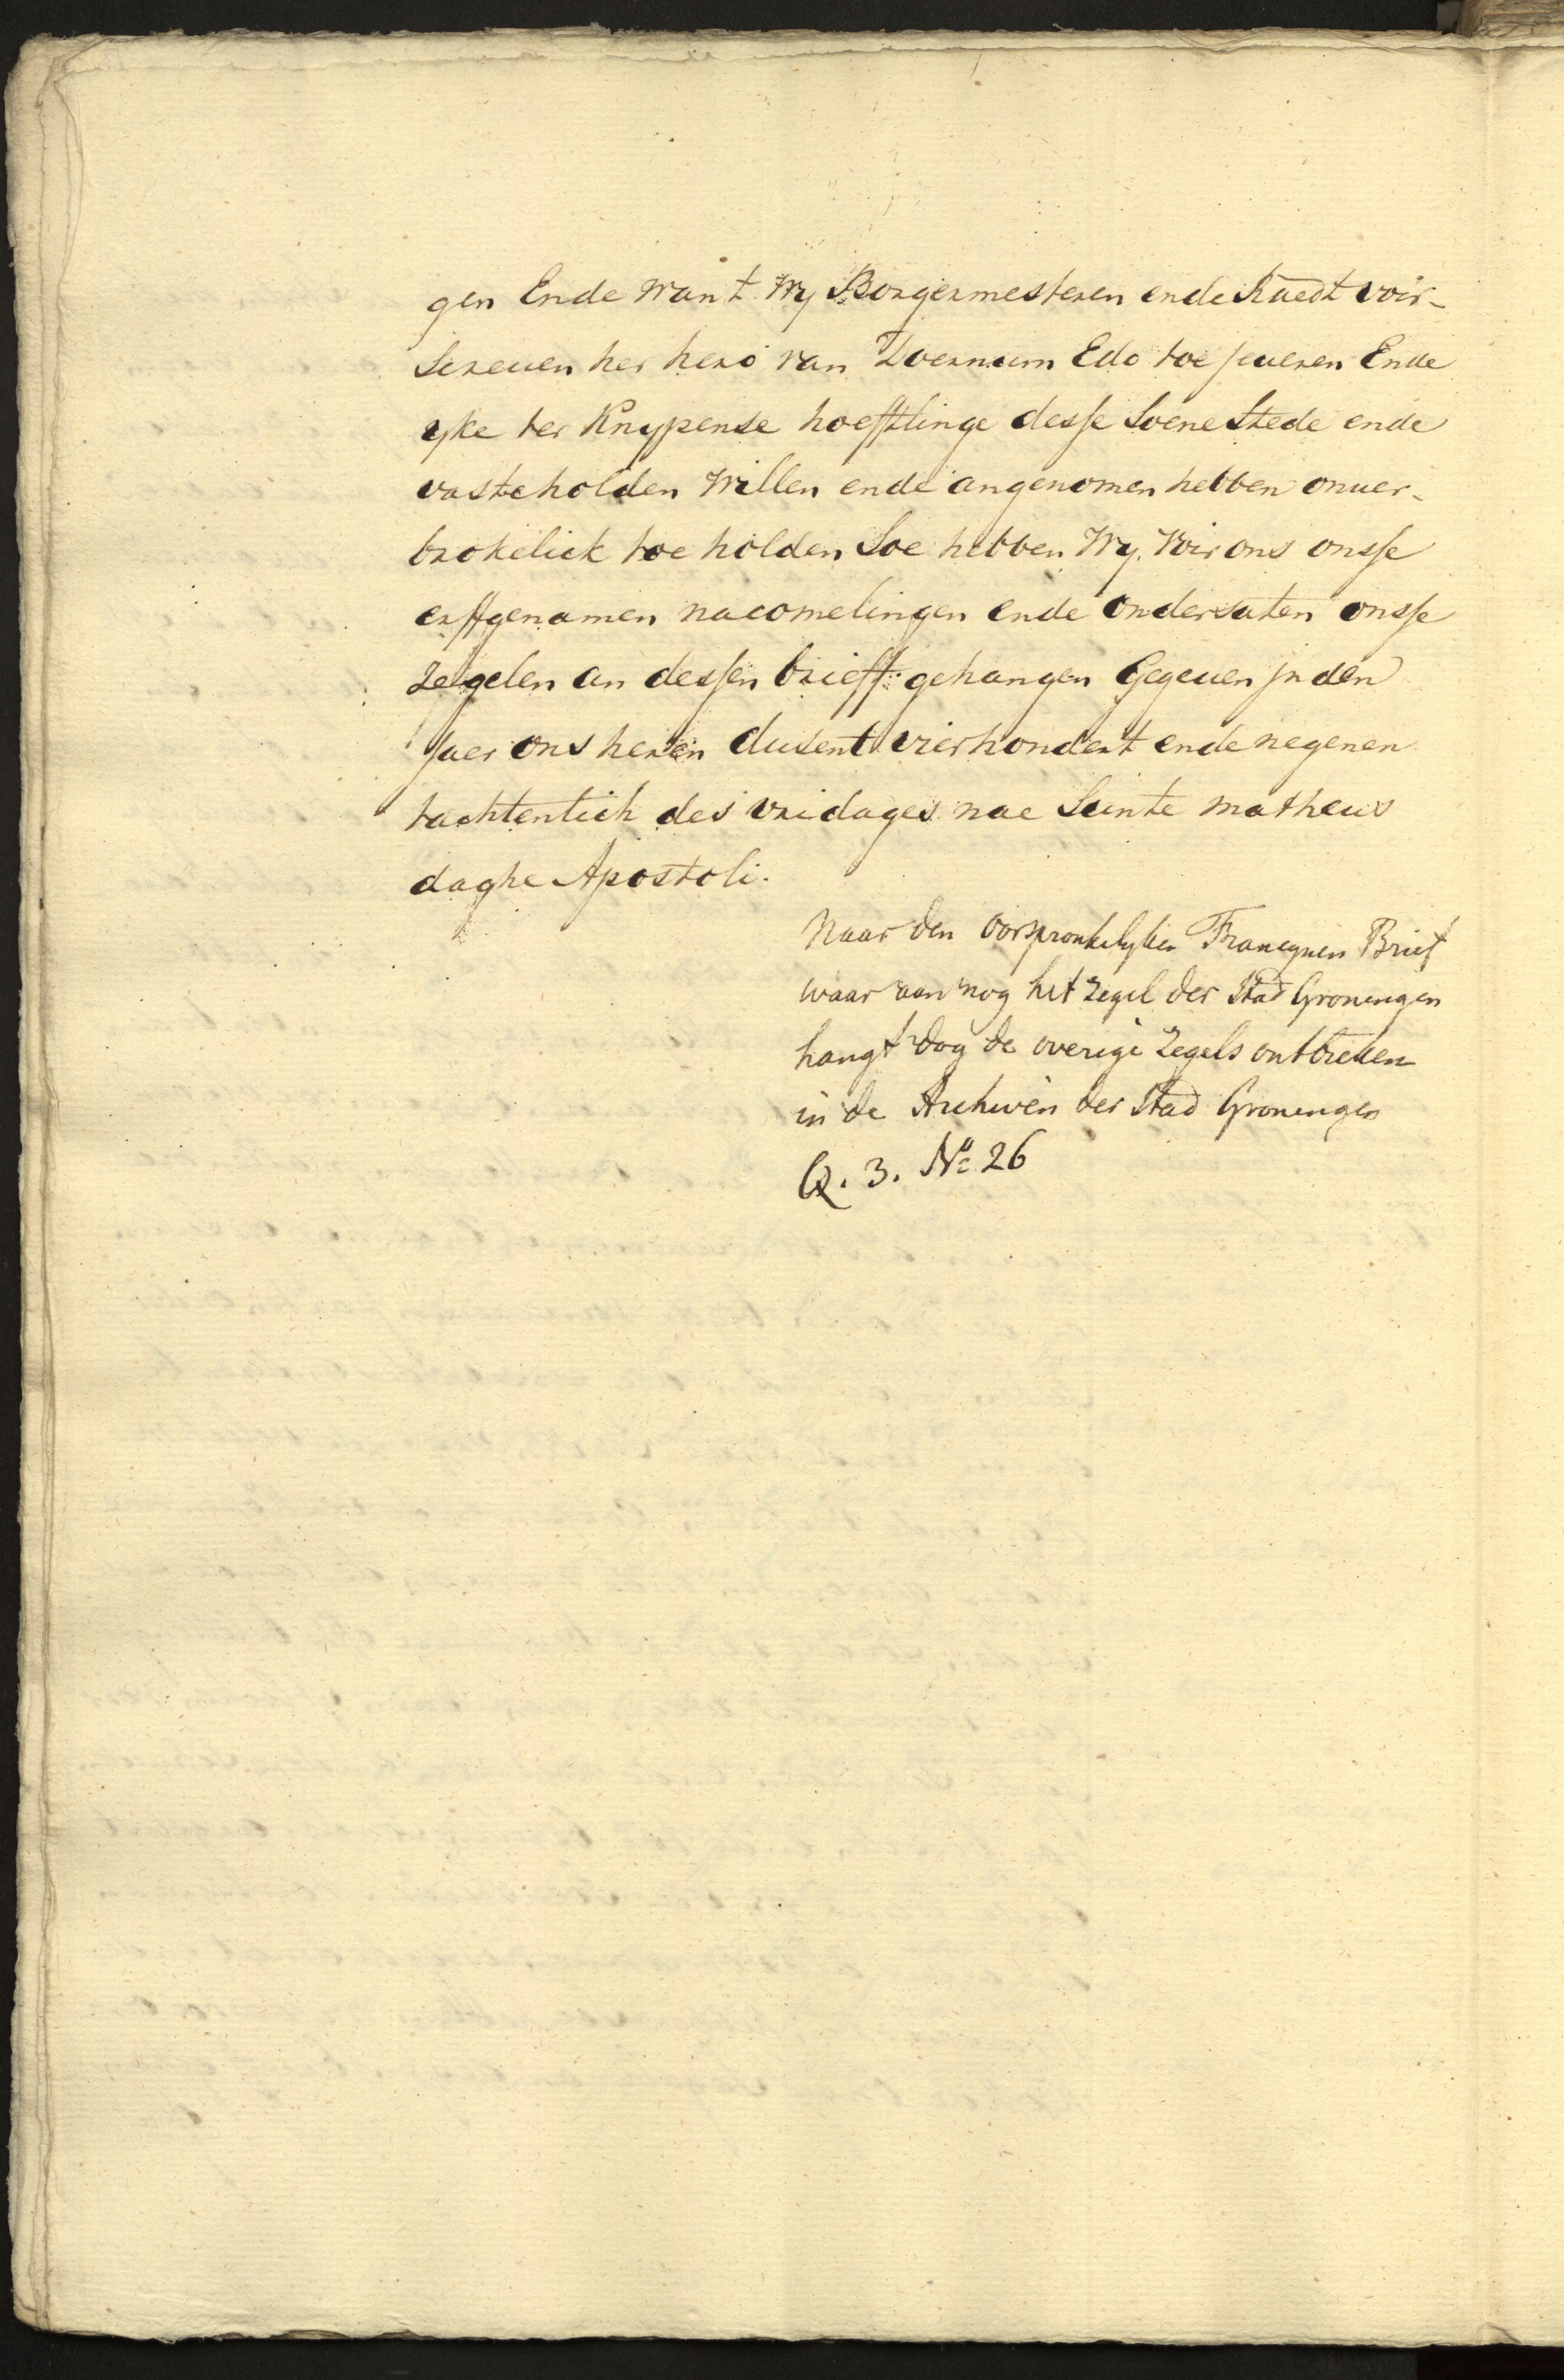 gen Ende want Wy Borgermesteren ende Raedt voir-
screuen her hero van Doernum Edo toe jeueren Ende
yke ter Knypense hoefftlinge desse Soene Stede ende
vaste holden Willen ende angenomen hebben onuer-
brokelick toe holden Soe hebben Wy. voir ons onsse
erffgenamen nacomelingen ende ondersaten onsse
zegelen an dessen brieff gehangen Gegeuen jn den
Jaer ons heren dusent vierhondert ende negenen
tachtentich des vridages nae Sinte matheus
daghe Apostoli.
Naar den oorspronkelyken Francynen Brief
waar aan nog het zegel der Stad Groningen
hangt dog de overige zegels ontbreken
in de Archiven der Stad Groningen
Q. 3. Nº 26